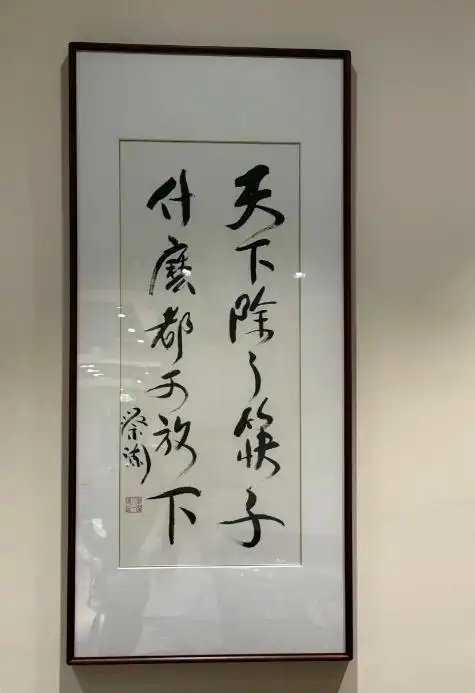 天下除了筷子
什麼都可放下
蔡瀾